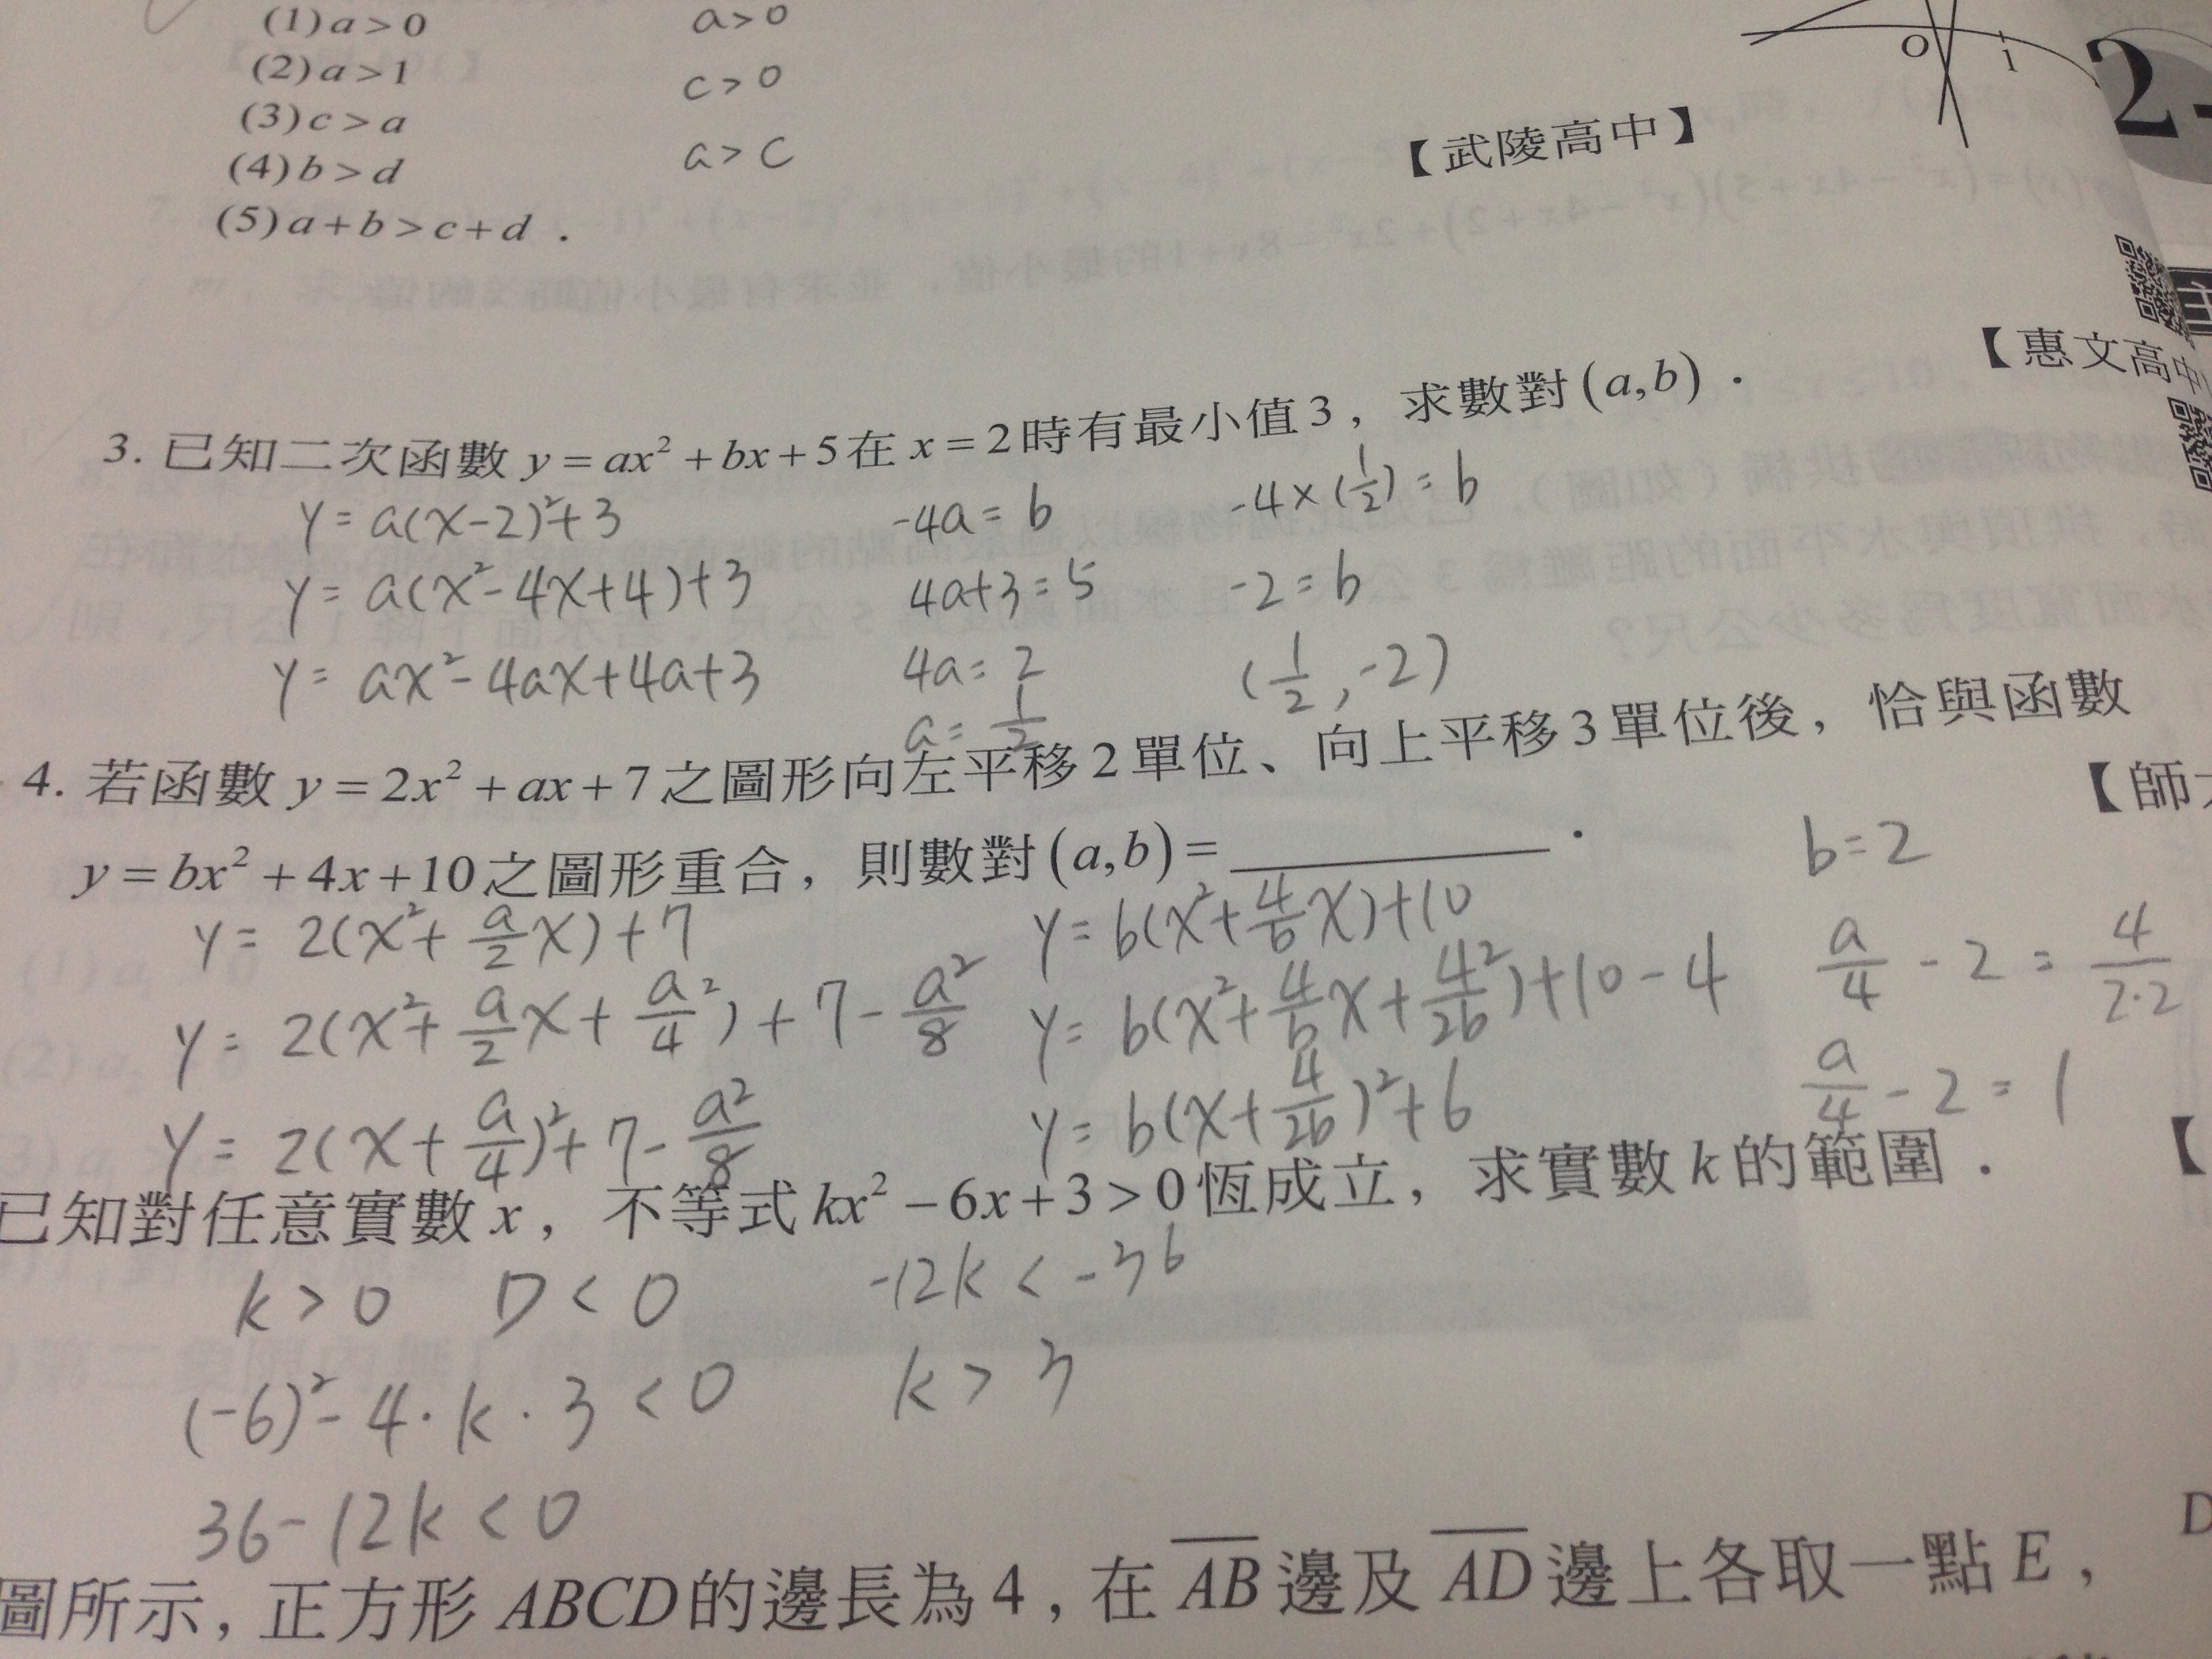 (1) a > 0
a > 0
(2) a > 1
c > 0
(3) c > a
a > c
(4) b > d
(5) a + b > c + d .
O 1
2-
【武陵高中】
【惠文高中
3. 已知二次函數 y = ax² + bx + 5 在 x = 2 時有最小值 3，求數對 (a,b)．
y = a(x-2)²+3
y = a(x²-4x+4)+3
y = ax²-4ax+4a+3
-4a = b
4a+3 = 5
4a = 2
a = 1/2
-4×(1/2) = b
-2 = b
(1/2, -2)
4. 若函數 y = 2x² + ax + 7 之圖形向左平移 2 單位、向上平移 3 單位後，恰與函數
【師
y = bx² + 4x + 10 之圖形重合，則數對 (a,b) = ________．
y = 2(x²+a/2x)+7
y = 2(x²+a/2x+a/4²)+7-a²/8
y = 2(x+a/4)²+7-a²/8
y = b(x²+4/bx)+10
y = b(x²+4/bx+4²/2b)+10-4
y = b(x+4/2b)²+6
b = 2
a/4 - 2 = 4/2·2
a/4 - 2 = 1
已知對任意實數 x，不等式 kx² − 6x + 3 > 0 恆成立，求實數 k 的範圍．
【
k > 0 D < 0
(-6)²-4·k·3 < 0
36-12k < 0
-12k < -36
k > 3
D
圖所示，正方形 ABCD 的邊長為 4，在 AB 邊及 AD 邊上各取一點 E，